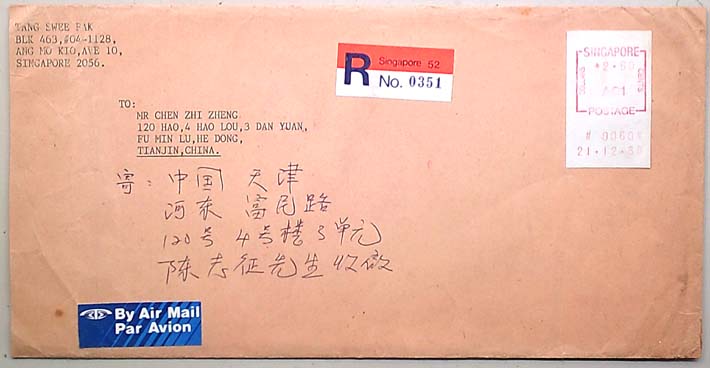 TANG SWEE PAK
BLK 463,#04-1128,
ANG MO KIO,AVE 10,
SINGAPORE 2056.
R
Singapore 52
No. 0351
SINGAPORE
DOLLARS
CENTS
POSTAGE
TO:
MR CHEN ZHI ZHENG
120 HAO,4 HAO LOU,3 DAN YUAN,
FU MIN LU,HE DONG,
TIANJIN,CHINA.
寄: 中国 天津
河东 富民路
120号 4号楼 3单元
陈志征先生 收
By Air Mail
Par Avion